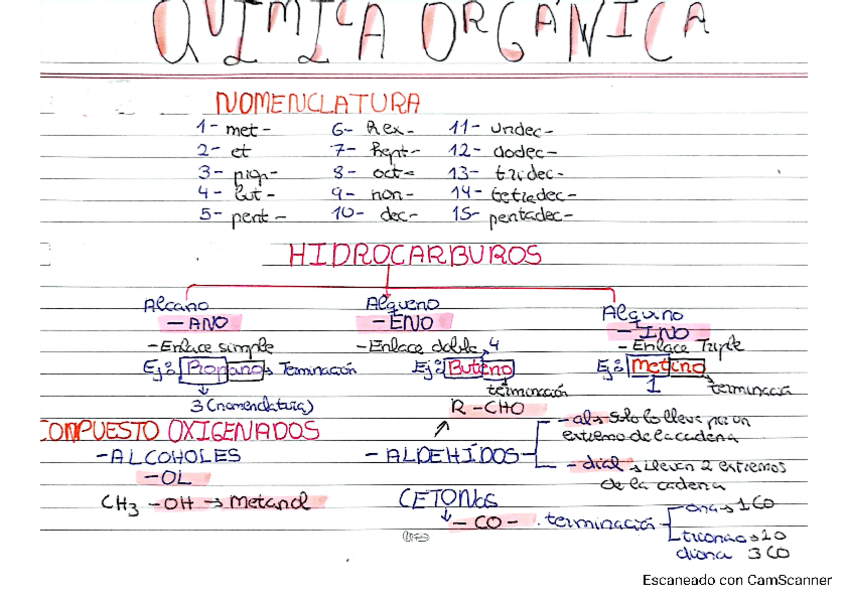 QUÍMICA ORGÁNICA
NOMENCLATURA
1- met- 6- hex- 11- undec-
2- et 7- hept- 12- dodec-
3- prop- 8- oct- 13- tridec-
4- but- 9- non- 14- tetradec-
5- pent- 10- dec- 15- pentadec-
HIDROCARBUROS
Alcano Alqueno Alquino
-ANO -ENO -INO
-Enlace simple -Enlace doble 4 -Enlace Triple
Ej: Propano → Terminación Ej: Buteno Ej: Metino
3 (nomenclatura) terminación 1 terminació
R-CHO
COMPUESTO OXIGENADOS
-al → Solo lo lleva por un
extremo de la cadena
-ALCOHOLES -ALDEHÍDOS
-OL
-dial → lleven 2 extremos
de la cadena
CH3-OH → Metanol
CETONAS
-CO- . terminación
ona → 1 CO
triona →
diona 3 CO
Escaneado con CamScanner